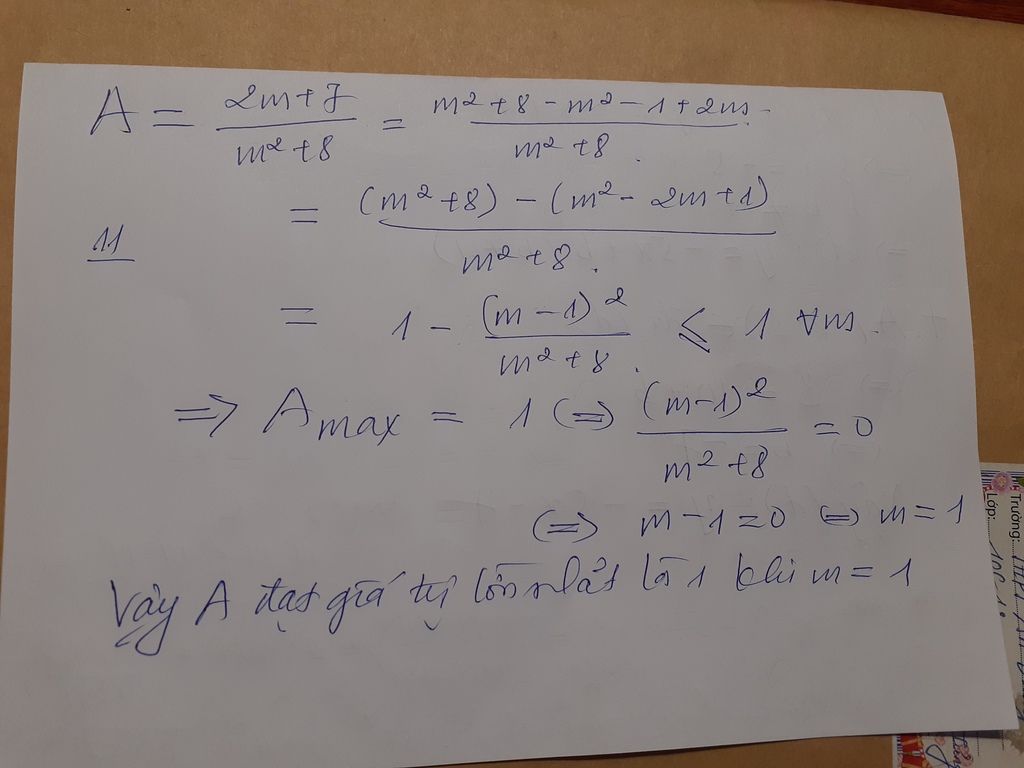 A = \frac{2m+7}{m^2+8} = \frac{m^2+8-m^2-1+2m}{m^2+8}.
= \frac{(m^2+8)-(m^2-2m+1)}{m^2+8}.
11
= 1 - \frac{(m-1)^2}{m^2+8} ≤ 1 ∀m.
⇒ A_{max} = 1 ⇔ \frac{(m-1)^2}{m^2+8} = 0
⇔ m-1=0 ⇔ m=1
Vậy A đạt giá trị lớn nhất là 1 khi m = 1
Trường:
Lớp: